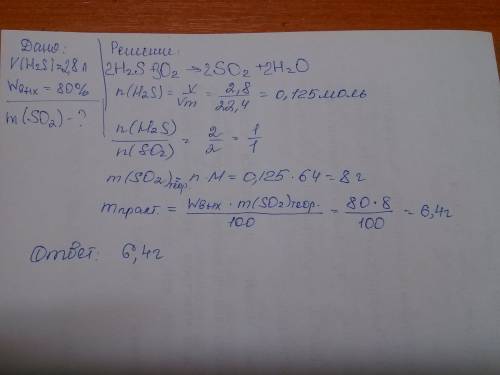 Дано:
V(H2S)=2,8 л
Wвых = 80%
m(SO2)-?
Решение:
2H2S + 3O2 → 2SO2 + 2H2O
n(H2S) = V/Vm = 2,8/22,4 = 0,125 моль
n(H2S)/n(SO2) = 2/2 = 1/1
m(SO2)теор. = n·M = 0,125·64 = 8 г
mпракт. = Wвых · m(SO2)теор./100 = 80·8/100 = 6,4г
Ответ: 6,4г